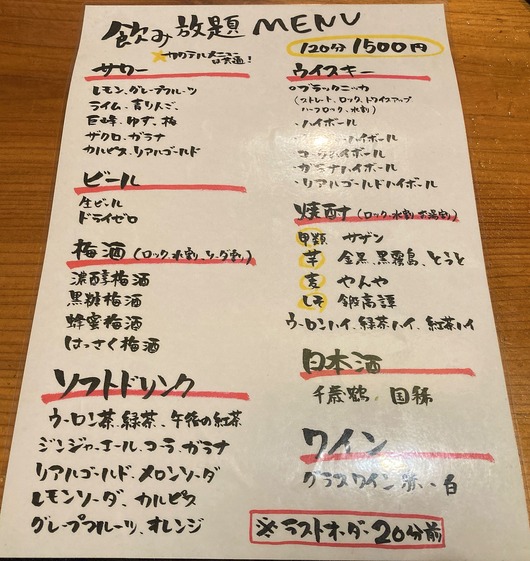 飲み放題 MENU
★カクテルメニューは共通!
120分 1500円
サワー
レモン、グレープフルーツ
ライム、青りんご、
巨峰、ゆず、梅
ザクロ、ガラナ
カルピス、リアルゴールド
ビール
生ビール
ドライゼロ
梅酒(ロック、水割、ソーダ割)
濃醇梅酒
黒糖梅酒
蜂蜜梅酒
はっさく梅酒
ソフトドリンク
ウーロン茶、緑茶、午後の紅茶
ジンジャーエール、コーラ、ガラナ
リアルゴールド、メロンソーダ
レモンソーダ、カルピス
グレープフルーツ、オレンジ
ウイスキー
ブラックニッカ
(ストレート、ロック、トワイスアップ
ハーフロック、水割)
・ハイボール
ハイボール
コークハイボール
・ガラナハイボール
・リアルゴールドハイボール
焼酎(ロック、水割、お湯割)
甲類 サザン
芋 金黒、黒霧島、とうと
麦 やんや
しそ 鍛高譚
ウーロンハイ、緑茶ハイ、紅茶ハイ
日本酒
千歳鶴、国稀
ワイン
グラスワイン 赤・白
※ラストオーダー20分前